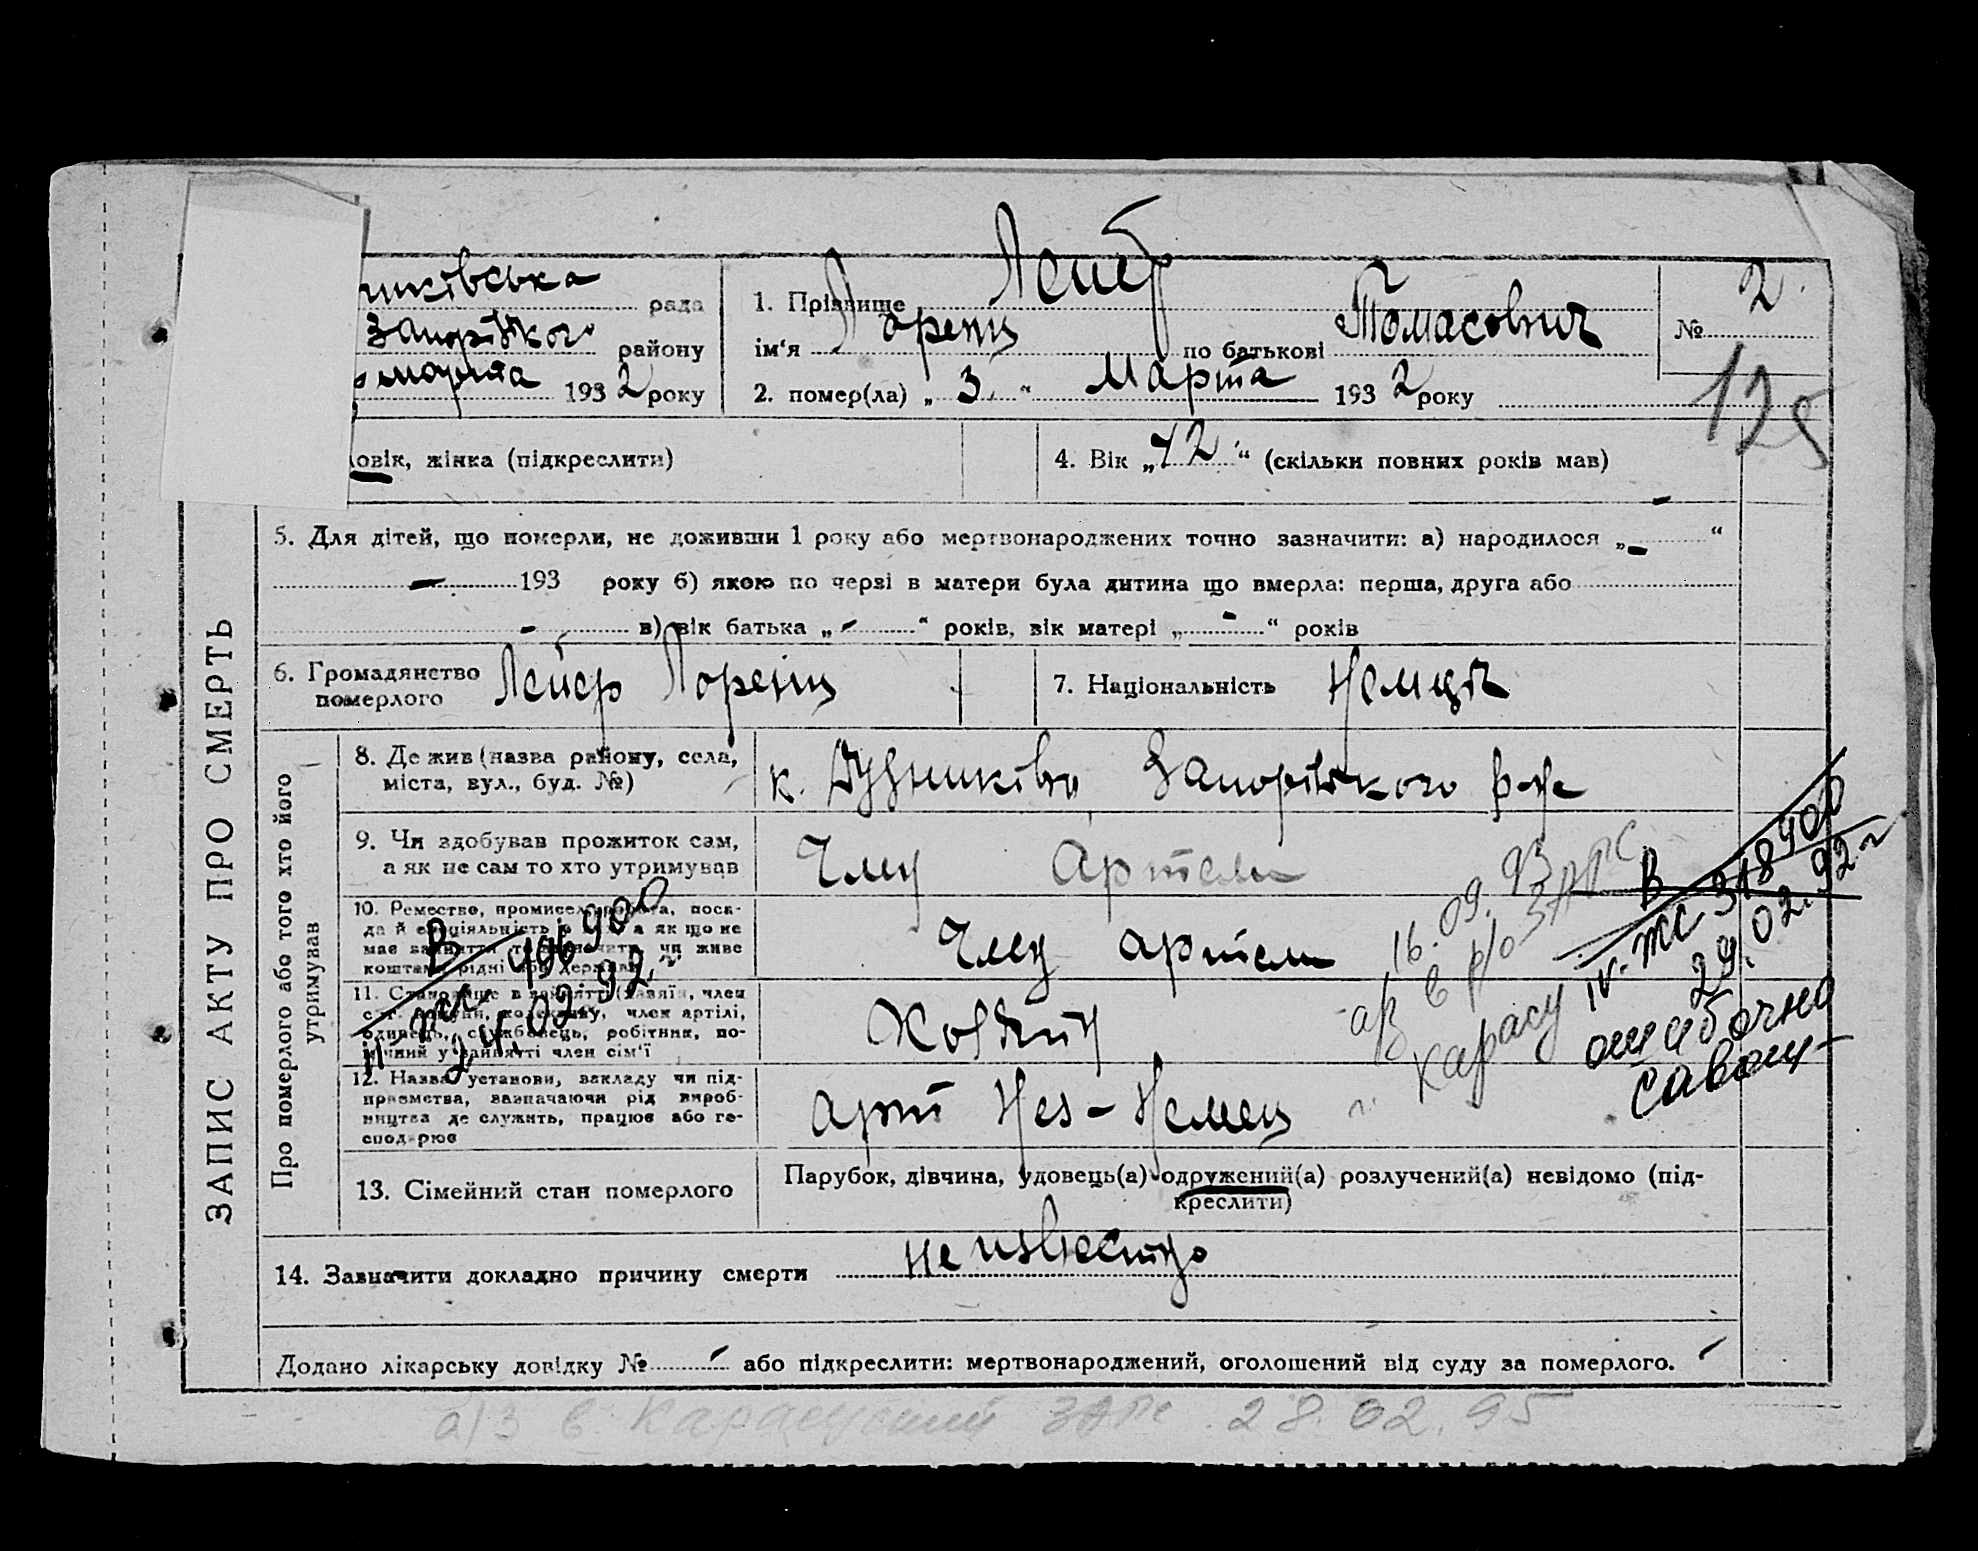 нжківська рада
Запорізького району
марта 1932 року
1. Прізвище Лейб
ім'я Лоренц по батькові Томасович
№ 2
125
2. помер(ла) „3“ Марта 1932 року
ловік, жінка (підкреслити)
4. Вік „72“ (скільки повних років мав)
5. Для дітей, що померли, не доживши 1 року або мертвонароджених точно зазначити: а) народилося „-“
- 193 року б) якою по черзі в матери була дитина що вмерла: перша, друга або
- в) вік батька „-“ років, вік матері „-“ років
6. Громадянство померлого Лейер Лоренц
7. Національність Немци
ЗАПИС АКТУ ПРО СМЕРТЬ
Про померлого або того хто його утримував
8. Де жив (назва району, села,
міста, вул., буд. №)
к. Запоріжкого р-н
9. Чи здобував прожиток сам,
а як не сам то хто утримував
Член Артели
10. Ремество, промисел, робота, поса-
да й спеціяльність а як що не
має заняття то зазначити чи живе
коштами рідні або держави
Член артели
11. Становище в занятті (хазяїн, член
с.-г. комуни, колективу, член артілі,
одинець, службовець, робітник, по-
мічний у занятті член сім'ї
12. Назва установи, закладу чи під-
приємства, зазначаючи рід вироб-
ництва де служить, працює або го-
сподарює
арт Немец
13. Сімейний стан померлого
Парубок, дівчина, удовець(а) одружений(а) розлучений(а) невідомо (під-
креслити)
14. Зазначити докладно причину смерти неизвестно
Додано лікарську довідку № - або підкреслити: мертвонароджений, оголошений від суду за померлого. -
16.09.93
а/з в р/о ЗАГС
Карасу
В
IV-ЖС 318400
29.02.92 г
ошибочно
В
24.02.92 г
а/з в Карасуский ЗАГС 28.02.95